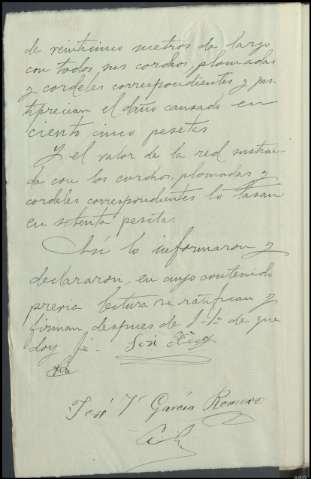 de veinticinco metros de largo
con todos sus corchos, plomadas
y cordeles correspondientes y jus-
tiprecian el daño causado en
ciento cinco pesetas.
Y el valor de la red sustrai-
da con los corchos, plomadas y
cordeles correspondientes lo tasan
en setenta pesetas.
Así lo informaron y
declararon, en cuyo contenido
previa lectura se ratifican y
firman, despues de S. Sª de que
doy fé. José
José Mª García Romero